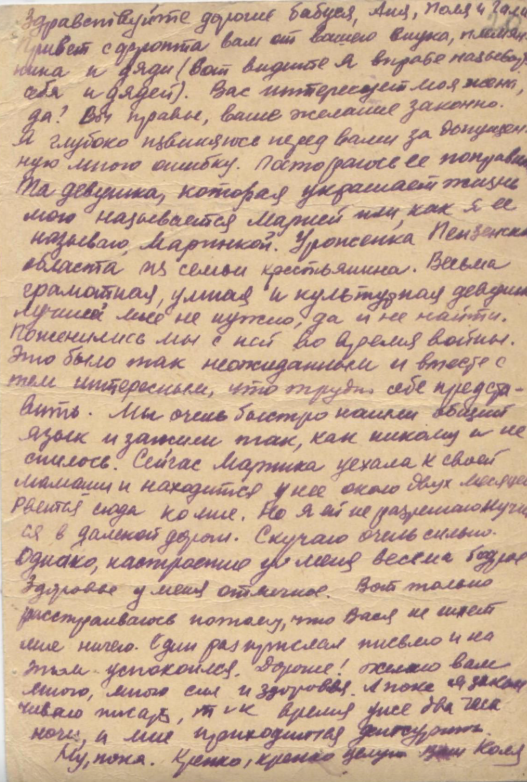 Здравствуйте дорогие бабуся, Аня, Поля и Галя
Привет с фронта вам от вашего внука, племян
ника и дяди (вот видите я вправе называть
себя и дядей). Вас интересует моя жена,
да? Вы правы, ваше желание законно.
Я глубоко извиняюсь перед вами за допущен
ную мною ошибку. Постараюсь ее поправи
Та девушка, которая украшает жизнь
мою называется Марией или, как я ее
называю, Маринкой. Уроженка Пензенск
области из семьи крестьянина. Весьма
грамотная, умная и культурная девушк
лучшей мне не нужно, да и не найти.
Поженились мы с ней во время войны.
Это было так неожиданным и вместе с
тем интересным, что трудно себе предста-
вить. Мы очень быстро нашли общий
язык и зажили так, как никому и не
снилось. Сейчас Маринка уехала к своей
мамаши и находится у нее около двух месяцев
рвется сюда ко мне. Но я ей не разрешаю мучи
ся в далекой дороги. Скучаю очень сильно.
Однако, настроение у меня весьма бодрое
Здоровье у меня отличное. Вот только
расстраиваюсь потому, что Вася не шлет
мне ничего. Один раз прислал письмо и на
этом успокоился. Дорогие! желаю вам
много, много сил и здоровья. А пока я закан
чиваю писать, т.к время уже два часа
ночи, и мне приходится дежурить.
Ну, пока. Крепко, крепко целую Коля